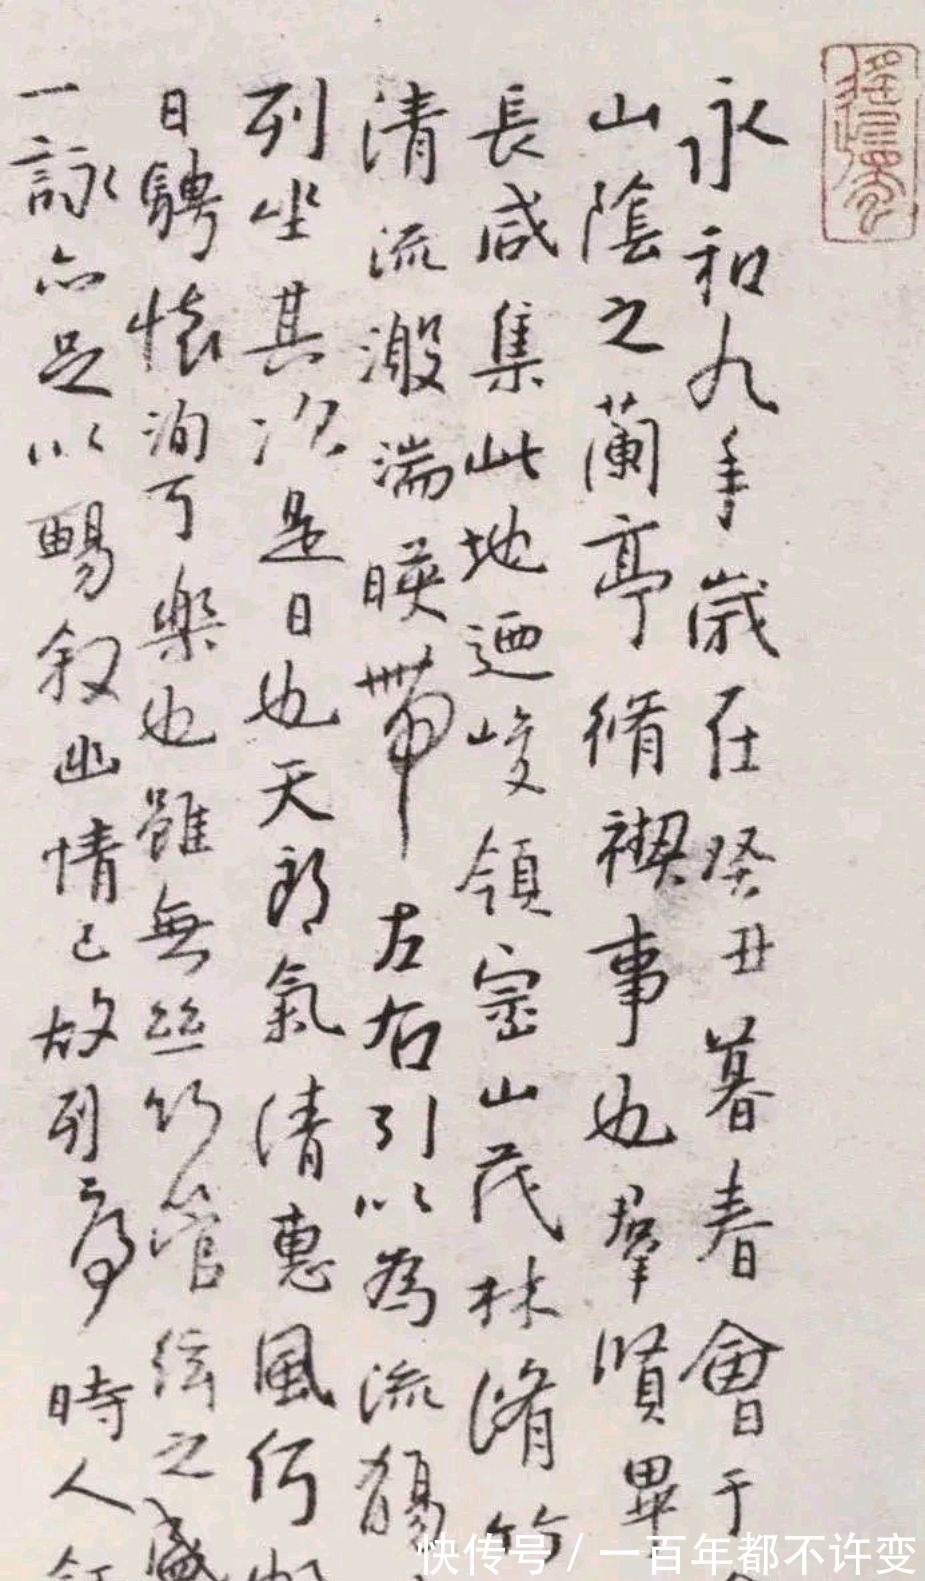 永和九年歲在癸丑暮春會于
山陰之蘭亭脩禊事也羣賢畢
長咸集此地迺峻領崇山茂林脩竹
清流激湍暎帶左右引以為流觴
列坐其次是日也天朗氣清惠風和
日騁懷洵可樂也雖無絲竹管絃之盛
一詠亦足以暢叙幽情已故列序時人
快传号 / 一百年都不许变